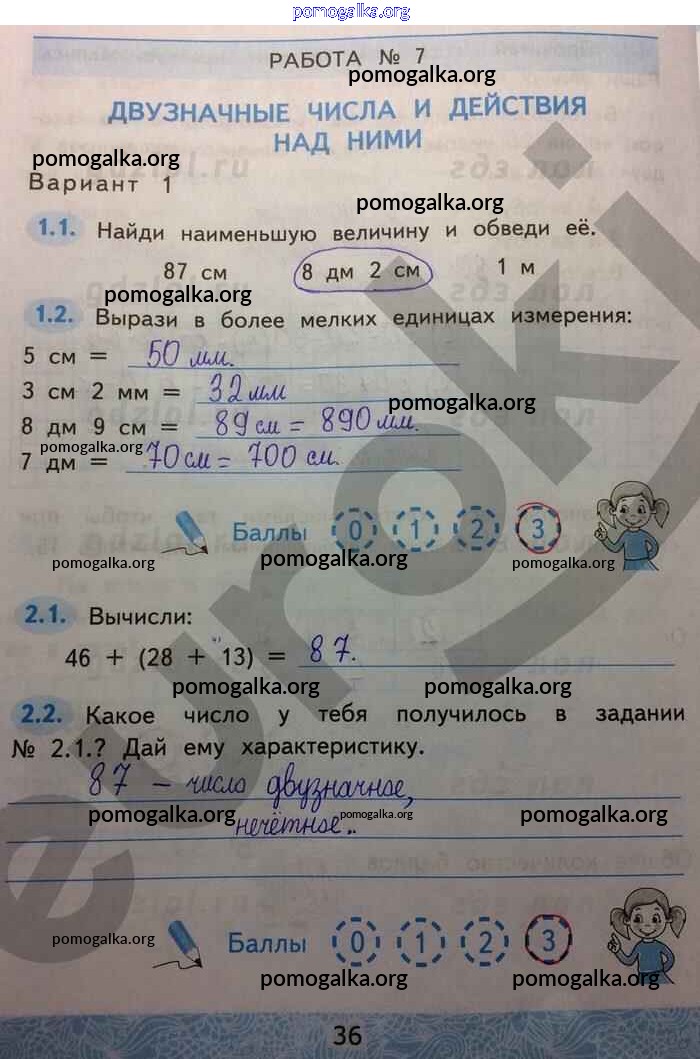 pomogalka.org
РАБОТА № 7
pomogalka.org
ДВУЗНАЧНЫЕ ЧИСЛА И ДЕЙСТВИЯ
НАД НИМИ
pomogalka.org
Вариант 1
pomogalka.org
1.1. Найди наименьшую величину и обведи её.
87 см 8 дм 2 см 1 м
pomogalka.org
1.2. Вырази в более мелких единицах измерения:
5 см = 50 мм.
3 см 2 мм = 32 мм
pomogalka.org
8 дм 9 см = 89 см = 890 мм.
pomogalka.org
7 дм = 70 см = 700 см.
Баллы 0 1 2 3
pomogalka.org pomogalka.org pomogalka.org
2.1. Вычисли:
46 + (28 + 13) = 87.
pomogalka.org pomogalka.org
2.2. Какое число у тебя получилось в задании
№ 2.1.? Дай ему характеристику.
87 – число двузначное,
pomogalka.org pomogalka.org pomogalka.org
нечётное..
pomogalka.org
Баллы 0 1 2 3
pomogalka.org pomogalka.org
36
euroki